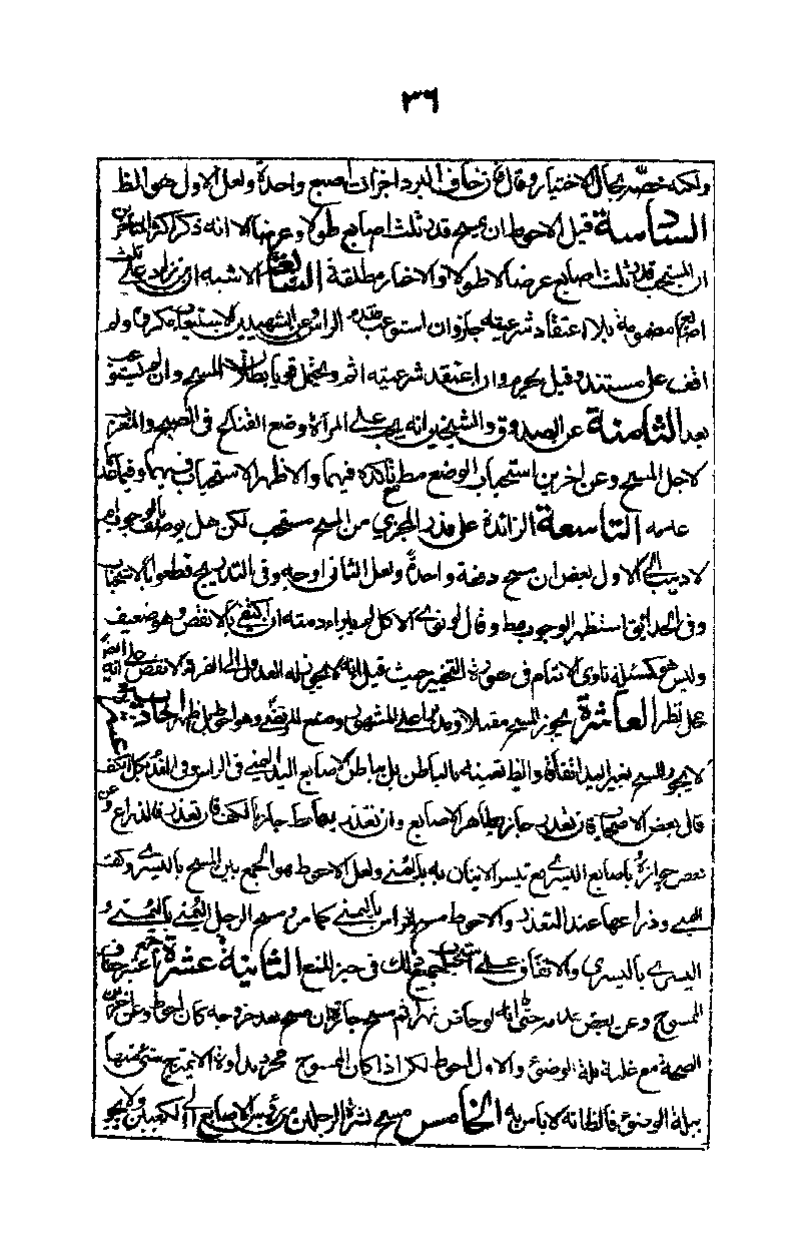 ٣٦
ولكنه خصّه بحال الاختيار وقال فان خاف البرد اجزأه اصبع واحدة ولعل الاول هو الظ
السادسة قيل الاحوط ان يمسح قدر ثلث اصابع طولا وعرضا الا انه ذكر اكثر المتاخرين
ان المستحب قدر ثلث اصابع عرضا لا طولا والاخبار مطلقة السابعة الاشبه ان ما زاد على ثلث
اصابع مضمومة بلا اعتقاد شرعيته جايز وان استوعب مقدم الراس وعن الشهيدين الاستيعاب مكروه ولم
اقف على مستنده وقيل يحرم وان اعتقد شرعيته اثم ويحتمل قويا بطلان المسح وان لم يستوعب
بعد الثامنة عن الصدوق والشيخين انه يجب على المرأة وضع القناع في الصبح والمغرب
لاجل المسح وعن اخرين استحباب الوضع مط وتأكده فيهما والاظهر الاستحباب فيهما وفيما
علمه التاسعة الزائدة على قدر المجزي من المسح مستحب لكن هل يوصف بالوجوب ام
لا ذهب الى الاول بعض ان مسح دفعة واحدة ولعل الثاني اوجه وفي التدريج قطعوا بالاستحباب
وفي الحدائق استظهر الوجوب مط وقال لو نوى الاكل لم يبرء ذمته ان اكتفى بالانقص وهو ضعيف
وليس هو كمسئلة ناوي الاتمام في صورة التخيير حيث قيل انه لا يجوز له العدول الى الفرد الانقص على انه ايضا
محل نظر العاشرة يجوز المسح مقبلا ومدبرا على المشهور ومنع المرتضى وهو احوط بل اظهر الحادية عشر
لا يجوز المسح بغير اليد اتفاقا والظ تعينه بالباطن بل بباطن الاصابع اليد اليمنى في الراس وفي القدم بكل الكف
قال بعض الاصحاب فان تعذر جاز بظاهر الاصابع وان تعذر بهما جاز بالكف فان تعذر فالذراع وعن
بعض جوازه باصابع اليسرى مع تيسر الاتيان به باليمنى ولعل الاحوط هو الجمع بين المسح باليسرى وكف
اليمنى وذراعها عند التعذر والاحوط مسح الراس باليمنى كما مر ومسح الرجل اليمنى باليمنى و
اليسرى باليسرى والاتفاق على استحباب جميع ذلك في حيز المنع الثانية عشرة اعتبر جمع جفاف
الممسوح وعن بعض عدمه حتى انه لو جلس في نهر ثم مسح جاز وان مسح بعد خروجه كان احوط وعن اخرين
الصحة مع غلبة بلة الوضوء والاول احوط لكن اذا كان الممسوح مجرد نداوة لا يمتزج شيء منها
ببلة الوضوء فالظ انه لا باس به الخامس مسح بشرة الرجلين من رؤس الاصابع الى الكعبين ولا يجوز